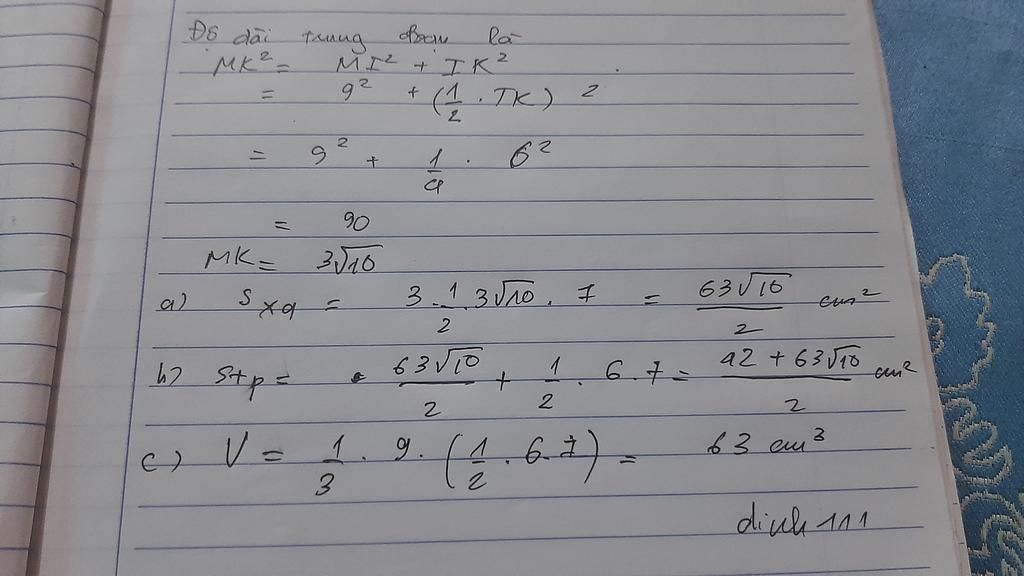 Độ dài trung đoạn là
MK² = MI² + IK²
= 9² + (1/2 . TK)²
= 9² + 1/4 . 6²
= 90
MK = 3√10
a) Sxq = 3 . 1/2 . 3√10 . 7 = 63√10/2 cm²
b) Stp = 63√10/2 + 1/2 . 6.7 = 42 + 63√10/2 cm²
c) V = 1/3 . 9 . (1/2 . 6.7) = 63 cm³
dinh 111